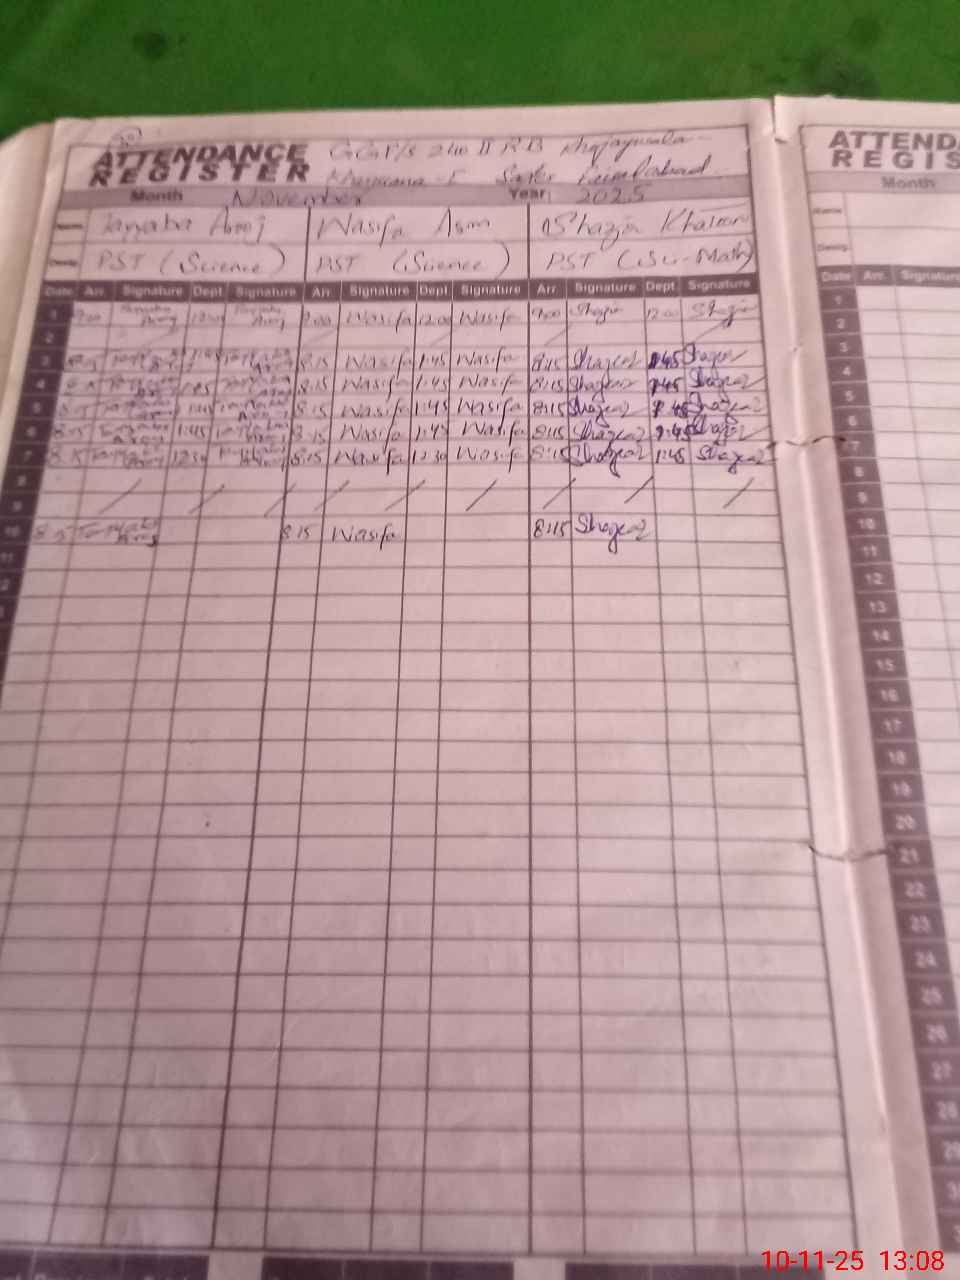 ATTENDANCE REGISTER
GGP/S 240 II RB
ATTENDA
REGIS
Month November Year: 2025
Month
Name Tayyaba Arooj Wasifa Asim Shazia Khatoon
Name
Desig PST (Science) PST (Science) PST (Sci-Math)
Desig
Date Arr. Signature Dept. Signature Arr. Signature Dept. Signature Arr. Signature Dept. Signature
Date Arr. Signature
1 9:00 Tayyaba Arooj 12:00 Tayyaba Arooj 9:00 Wasifa 12:00 Wasifa 9:00 Shazia 12:00 Shazia
2
3 8:15 Tayyaba Arooj 1:45 Tayyaba Arooj 8:15 Wasifa 1:45 Wasifa 8:15 Shazia 1:45 Shazia
4 8:15 Tayyaba Arooj 1:45 Tayyaba Arooj 8:15 Wasifa 1:45 Wasifa 8:15 Shazia 1:45 Shazia
5 8:15 Tayyaba Arooj 1:45 Tayyaba Arooj 8:15 Wasifa 1:45 Wasifa 8:15 Shazia 1:45 Shazia
6 8:15 Tayyaba Arooj 1:45 Tayyaba Arooj 8:15 Wasifa 1:45 Wasifa 8:15 Shazia 1:45 Shazia
7 8:15 Tayyaba Arooj 12:30 Tayyaba Arooj 8:15 Wasifa 12:30 Wasifa 8:15 Shazia 1:45 Shazia
8
9
10 8:15 Tayyaba Arooj 8:15 Wasifa 8:15 Shazia
11
1
2
3
4
5
6
7
8
9
10
11
12
13
14
15
16
17
18
19
20
21
22
23
24
25
26
27
28
29
10-11-25 13:08